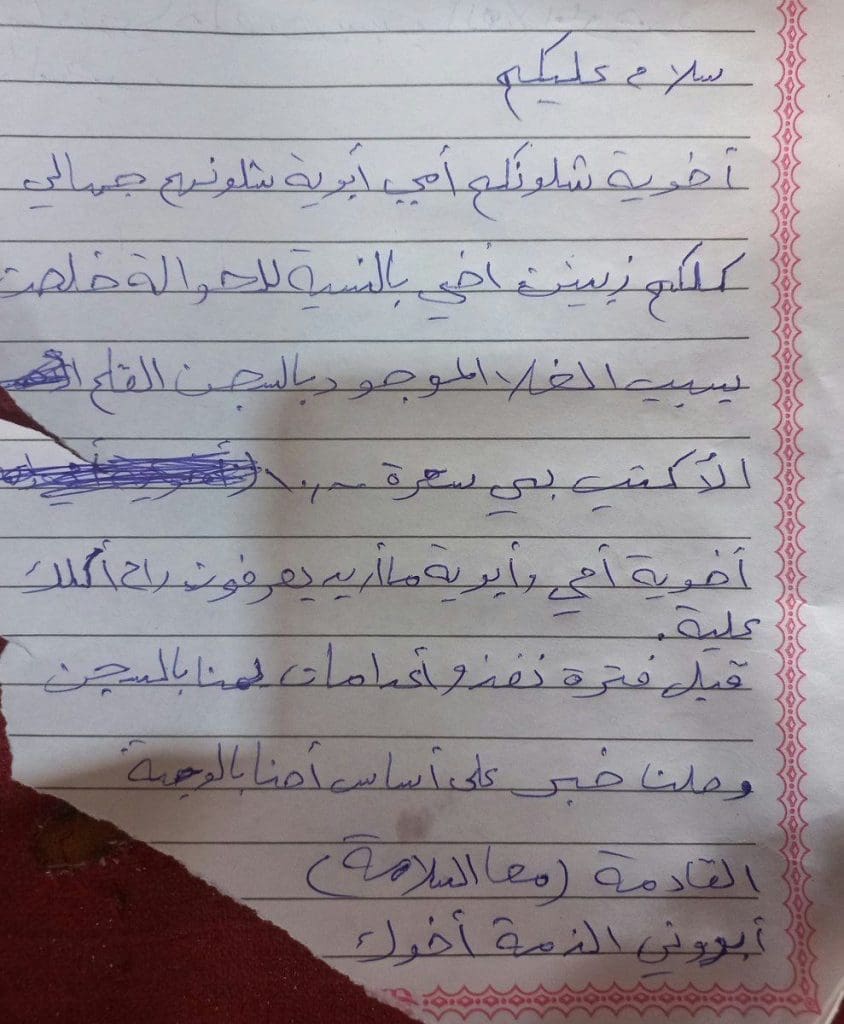 سلام عليكم
أخوية شلونكم أمي أبوية شلونهم جهالي
كلكم زينين أخي بالنسبة للحوالة خلصت
بسبب الغلا الموجود بالسجن القلم
الأكتب بي سعرة ١٠،٠٠٠
أخوية أمي وأبوية ما أريد يعرفون راح أكلك
علية.
قبل فترة نفذو أعدامات يمنا بالسجن
وصلنا خبر على أساس أحنا بالوجبة
القادمة (مع السلامة)
أبروني الذمة أخوك